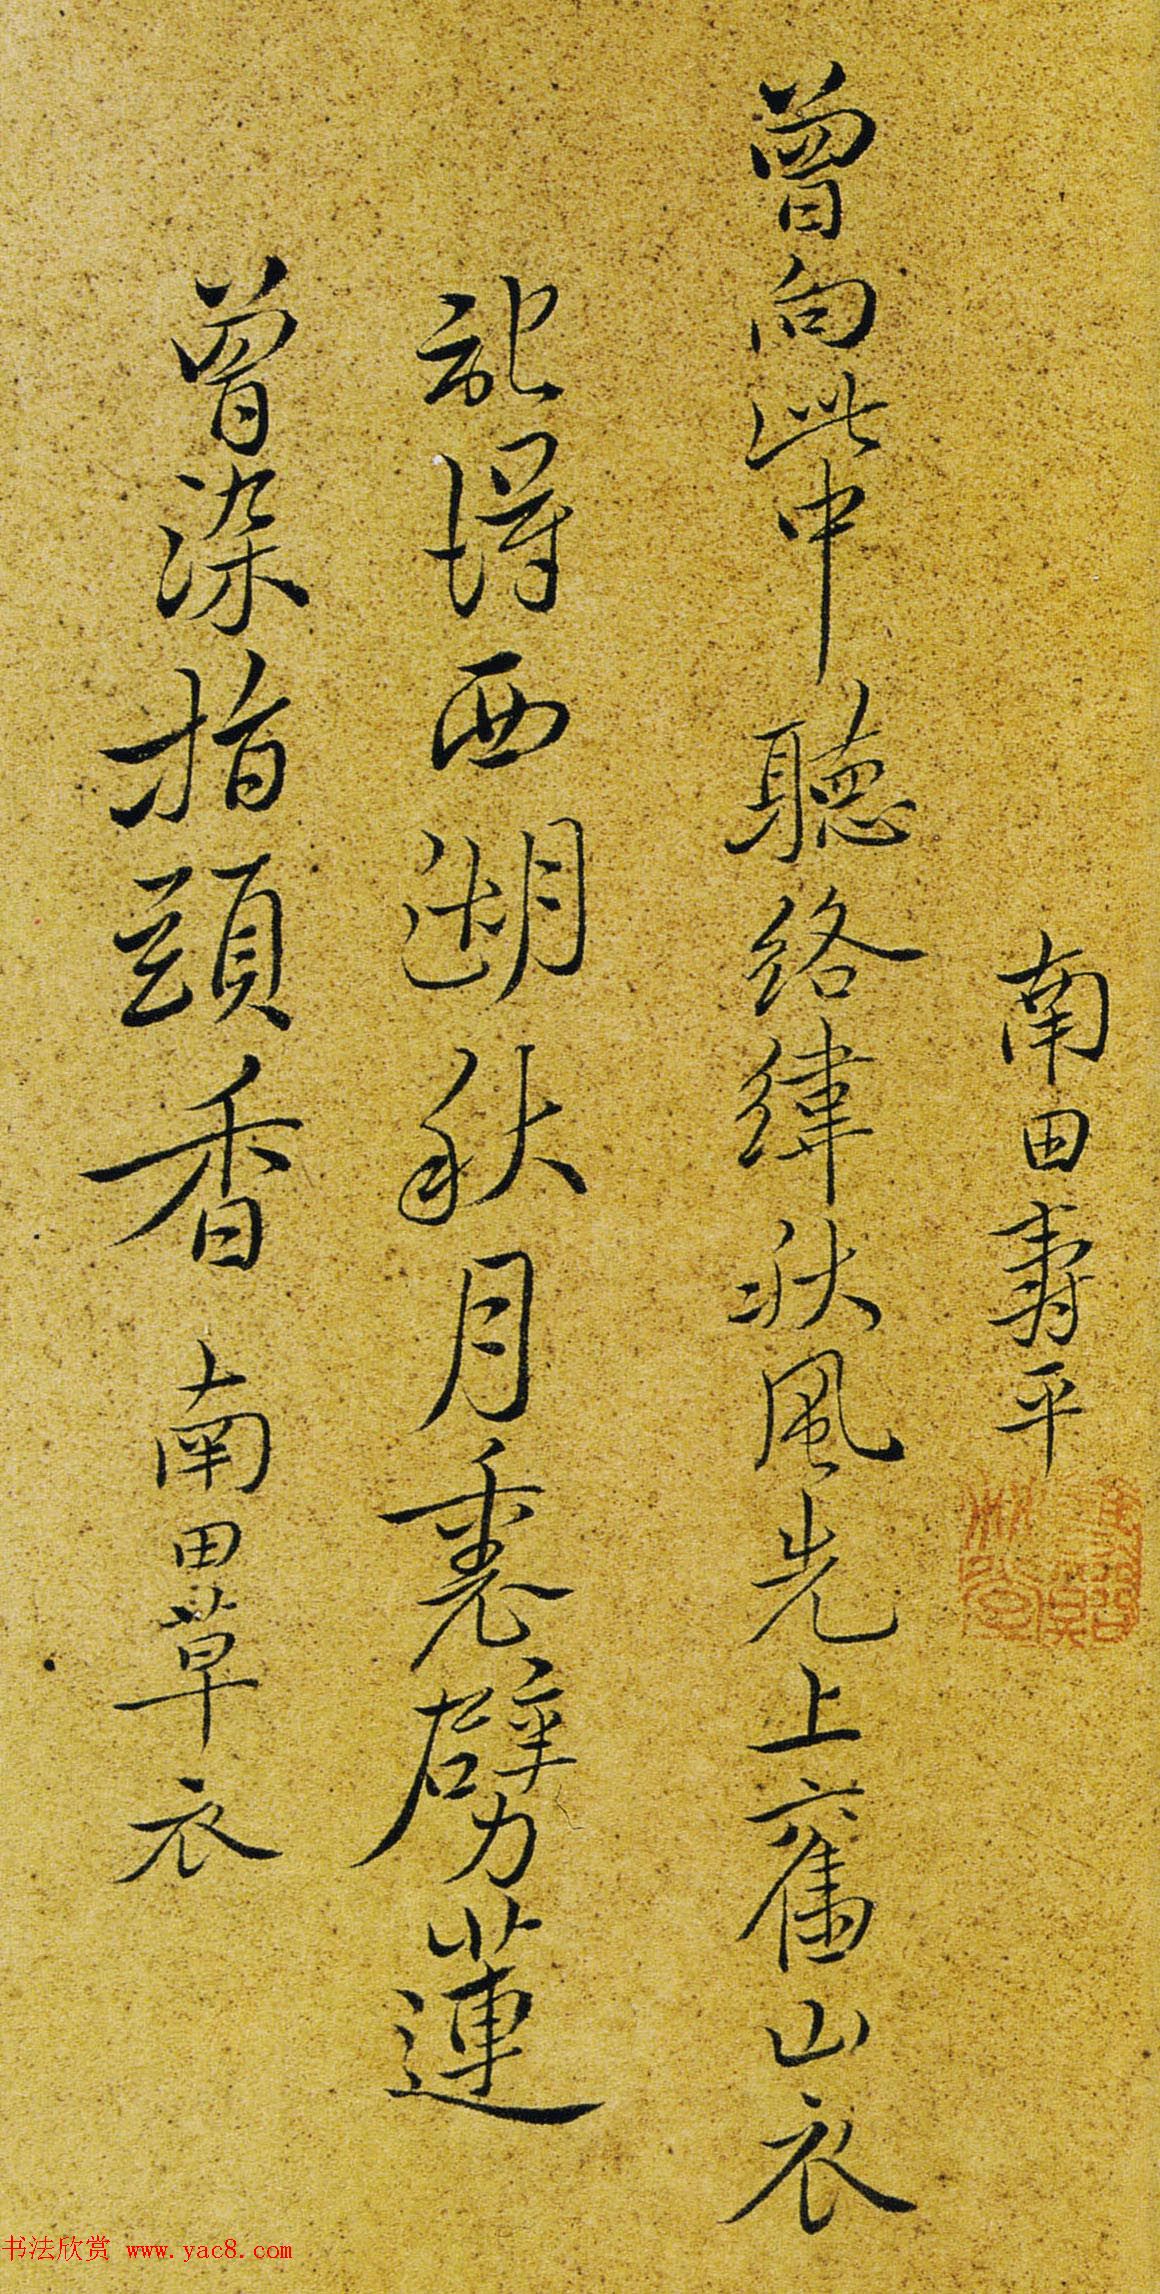 南田壽平
曾向此中聽絡緯秋風先上舊山衣
記得西湖秋月裏劈蓮
曾染指頭香 南田草衣
书法欣赏 www.yac8.com